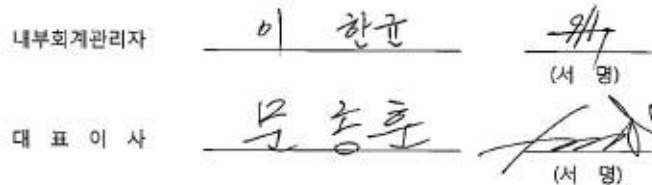 내부회계관리자 이 한균
(서 명)
대 표 이 사 문 종훈
(서 명)